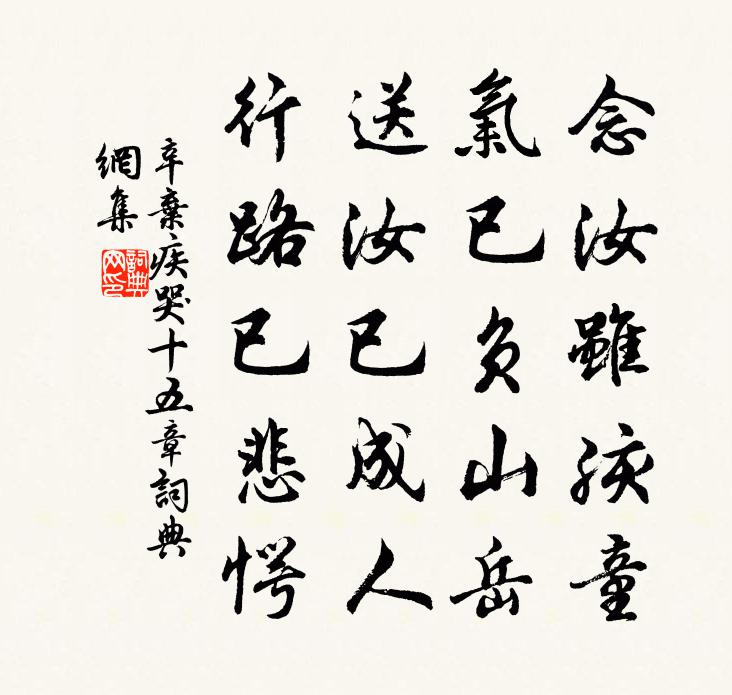 念汝雖孩童
氣已負山岳
送汝已成人
行路已悲愕
辛棄疾哭十五章詞典
網集
詞典網印